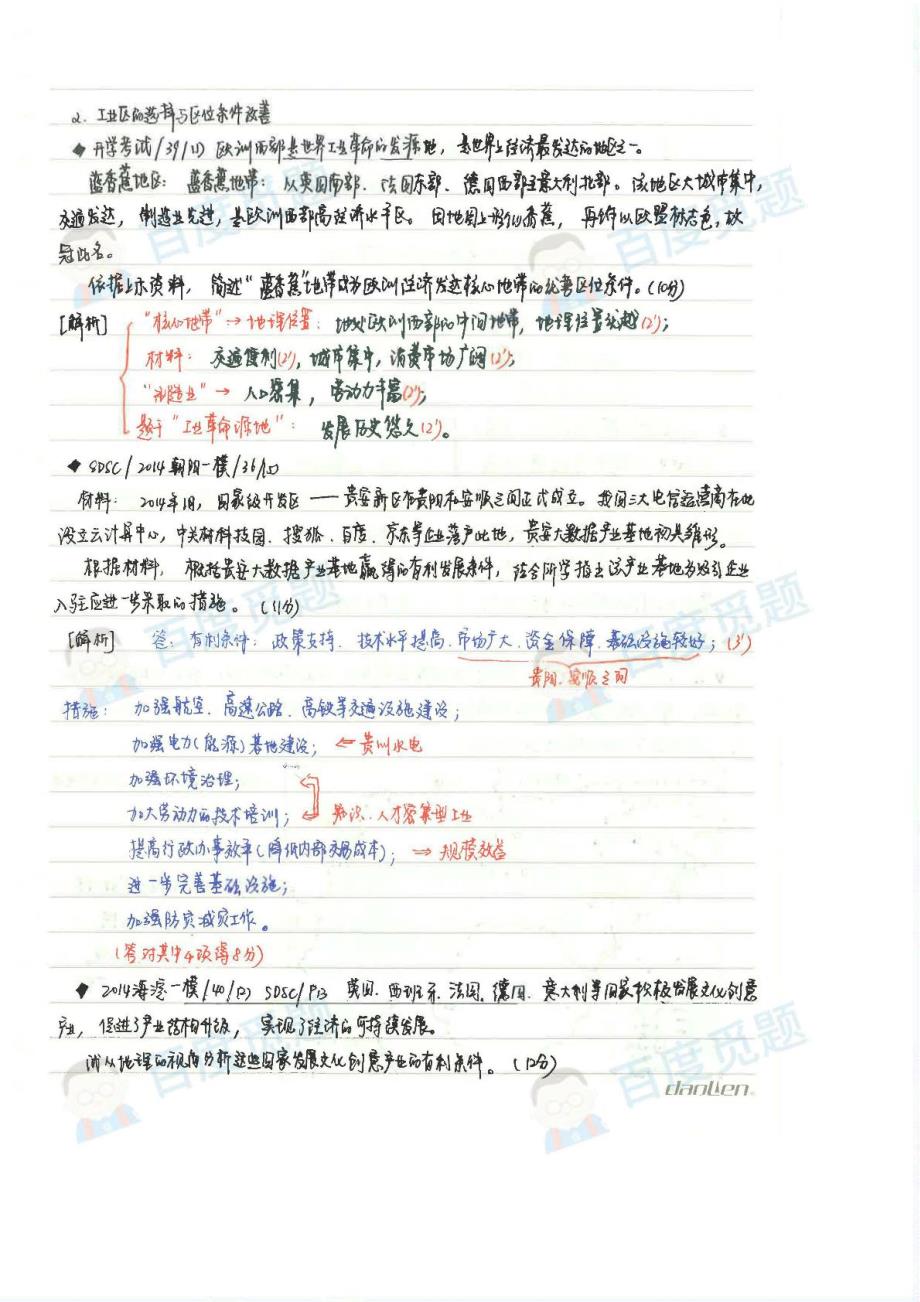 2. 工业区的选择与区位条件改善
◆ 开学考试/39/(1) 欧洲西部是世界工业革命的发源地，是世界上经济最发达的地区之一。
蓝香蕉地区：蓝香蕉地带：从英国南部、法国东部、德国西部至意大利北部。该地区大城市集中，
交通发达，制造业先进，是欧洲西部高经济水平区。因地图上形似香蕉，再饰以欧盟标志色，故
冠此名。
依据上示资料，简述“蓝香蕉”地带成为欧洲经济发达核心地带的优善区位条件。(10分)
[解析] “核心地带”→地理位置：地处欧洲西部的中间地带，地理位置优越(2')；
材料：交通便利(2')，城市集中，消费市场广阔(2')；
“制造业”→ 人口密集，劳动力丰富(2')；
题干“工业革命源地”：发展历史悠久(2')。
◆ SDSC/2014朝阳一模/36/
材料：2014年1月，国家级开发区——贵安新区在贵阳和安顺之间正式成立。我国三大电信运营商在此
设立云计算中心，中关村科技园、搜狐、百度、京东等企业落户此地，贵安大数据产业基地初具雏形。
根据材料，概括贵安大数据产业基地赢得的有利发展条件，结合所学指出该产业基地为吸引企业
入驻应进一步采取的措施。(11分)
[解析] 答：有利条件：政策支持、技术水平提高、市场广大、资金保障、基础设施较好；(3')
贵阳、安顺之间
措施：加强航空、高速公路、高铁等交通设施建设；
加强电力(能源)基地建设；← 贵州水电
加强环境治理；
加大劳动力的技术培训；知识、人才密集型工业
提高行政办事效率(降低内部交易成本)；→规模效益
进一步完善基础设施；
加强防灾减灾工作。
(答对其中4项得8分)
◆ 2014海淀一模/40/(2) SDSC/P13 英国、西班牙、法国、德国、意大利等国家积极发展文化创意
产业，促进了产业结构升级，实现了经济的可持续发展。
试从地理的视角分析这些国家发展文化创意产业的有利条件。(12分)
danlen
百度觅题
百度觅题
百度觅题
百度觅题
百度觅题
百度觅题